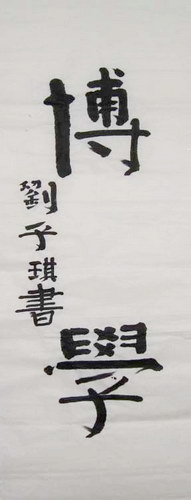 博學
劉子琪書